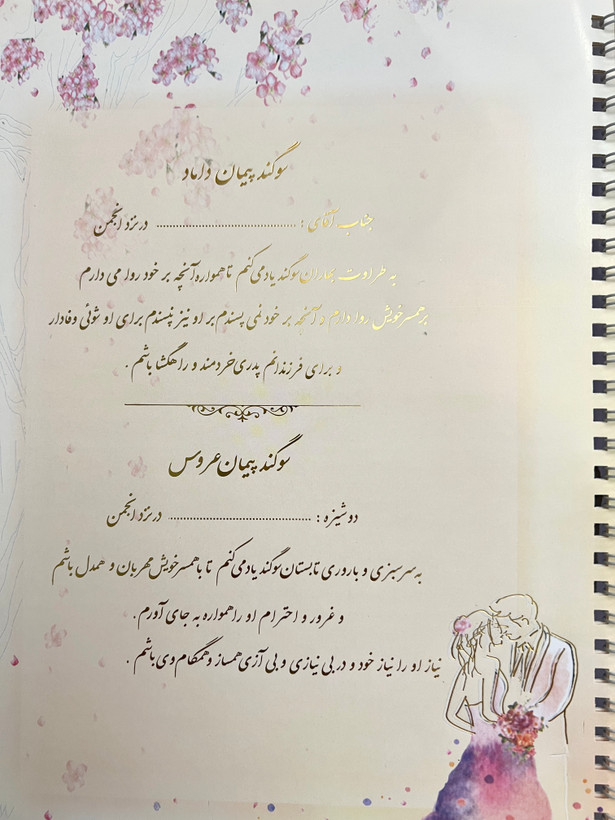 سوگند پیمان داماد
جناب آقای : .......................................... در نزد انجمن
به طراوت بهاران سوگند یاد می کنم تا همواره آنچه بر خود روا می دارم
بر همسر خویش روا دارم و آنچه بر خود نمی پسندم بر او نیز نپسندم برای او شوئی وفادار
و برای فرزندانم پدری خردمند و راهگشا باشم .
سوگند پیمان عروس
دوشیزه : .......................................... در نزد انجمن
به سرسبزی و باروری تابستان سوگند یاد می کنم تا با همسر خویش مهربان و همدل باشم
و غرور و احترام او را همواره به جای آورم .
نیاز او را نیاز خود و در بی نیازی و بی آزی همساز و همگام وی باشم .